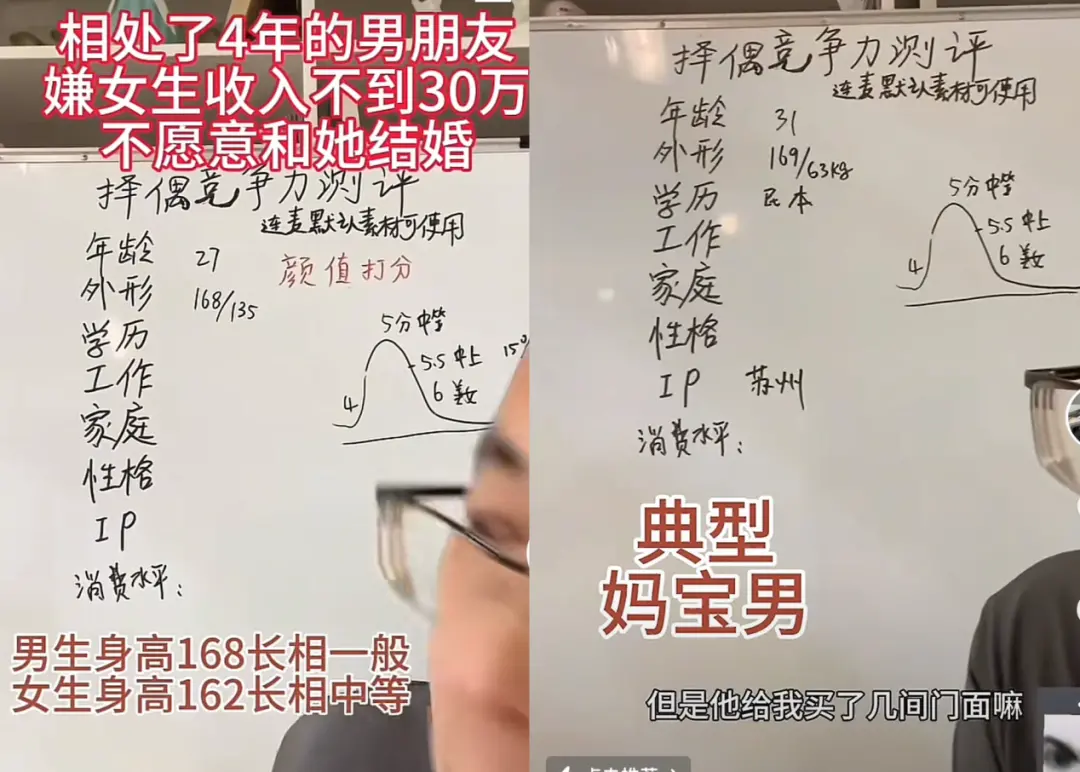 相处了4年的男朋友
嫌女生收入不到30万
不愿意和她结婚
择偶竞争力测评
连麦默认素材可使用
年龄 27
颜值打分
外形 168/135
学历
工作
家庭
性格
IP
消费水平:
5分中等
5.5中上
6美女
4
男生身高168长相一般
女生身高162长相中等
择偶竞争力测评
连麦默认素材可使用
年龄 31
外形 169/63kg
学历 民本
工作
家庭
性格
IP 苏州
消费水平:
5分中等
5.5中上
6美女
4
典型
妈宝男
但是他给我买了几间门面嘛